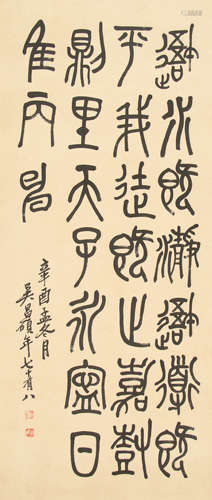 避水既瀞避導既
平我徒既止嘉尌
鼎里天子永寍日
隹丙申
辛酉孟冬月
吳昌碩年七十有八